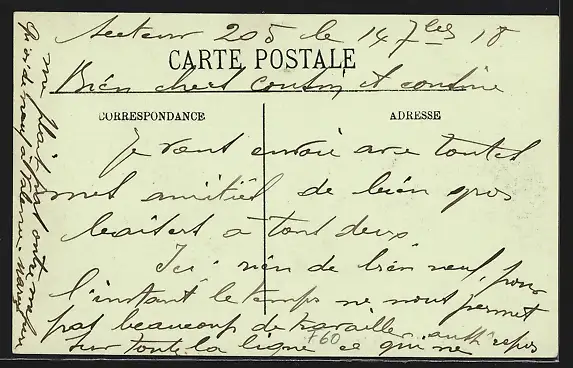 Secteur 205 le 14 7bre 18
CARTE POSTALE
Bien chers cousin et cousine
CORRESPONDANCE
ADRESSE
Je vous envoie avec toutes
mes amitiés de bien gros
baisers à tous deux
Ici rien de bien neuf, pour
l'instant le temps ne nous permet
pas beaucoup de travailler aussi repos
sur toute la ligne ce qui ne
me plait pas outre mesure
Quoi de neuf à
760